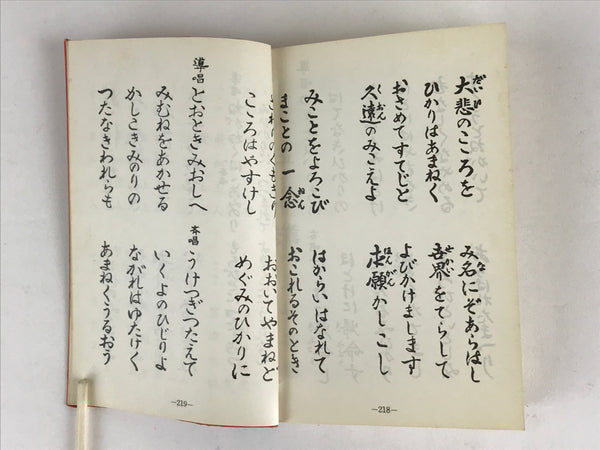 大悲のこころを　み名にぞあらはし
ひかりはあまねく　世界をてらして
おさめてすてじと　よびかけまします
久遠のみこえよ　本願かしこし
みことをよろこび　はからいはなれて
まことの一念　おこれるそのとき
—218—
さわりのくもきり　おおいてやまねど
こころはやすけし　めぐみのひかりに
導唱　とおときみおしへ　斉唱　うけつぎつたえて
みむねをあかせる　いくよのひじりよ
かしこきみのりの　ながれはゆたけく
つたなきわれらも　あまねくうるおう
—219—